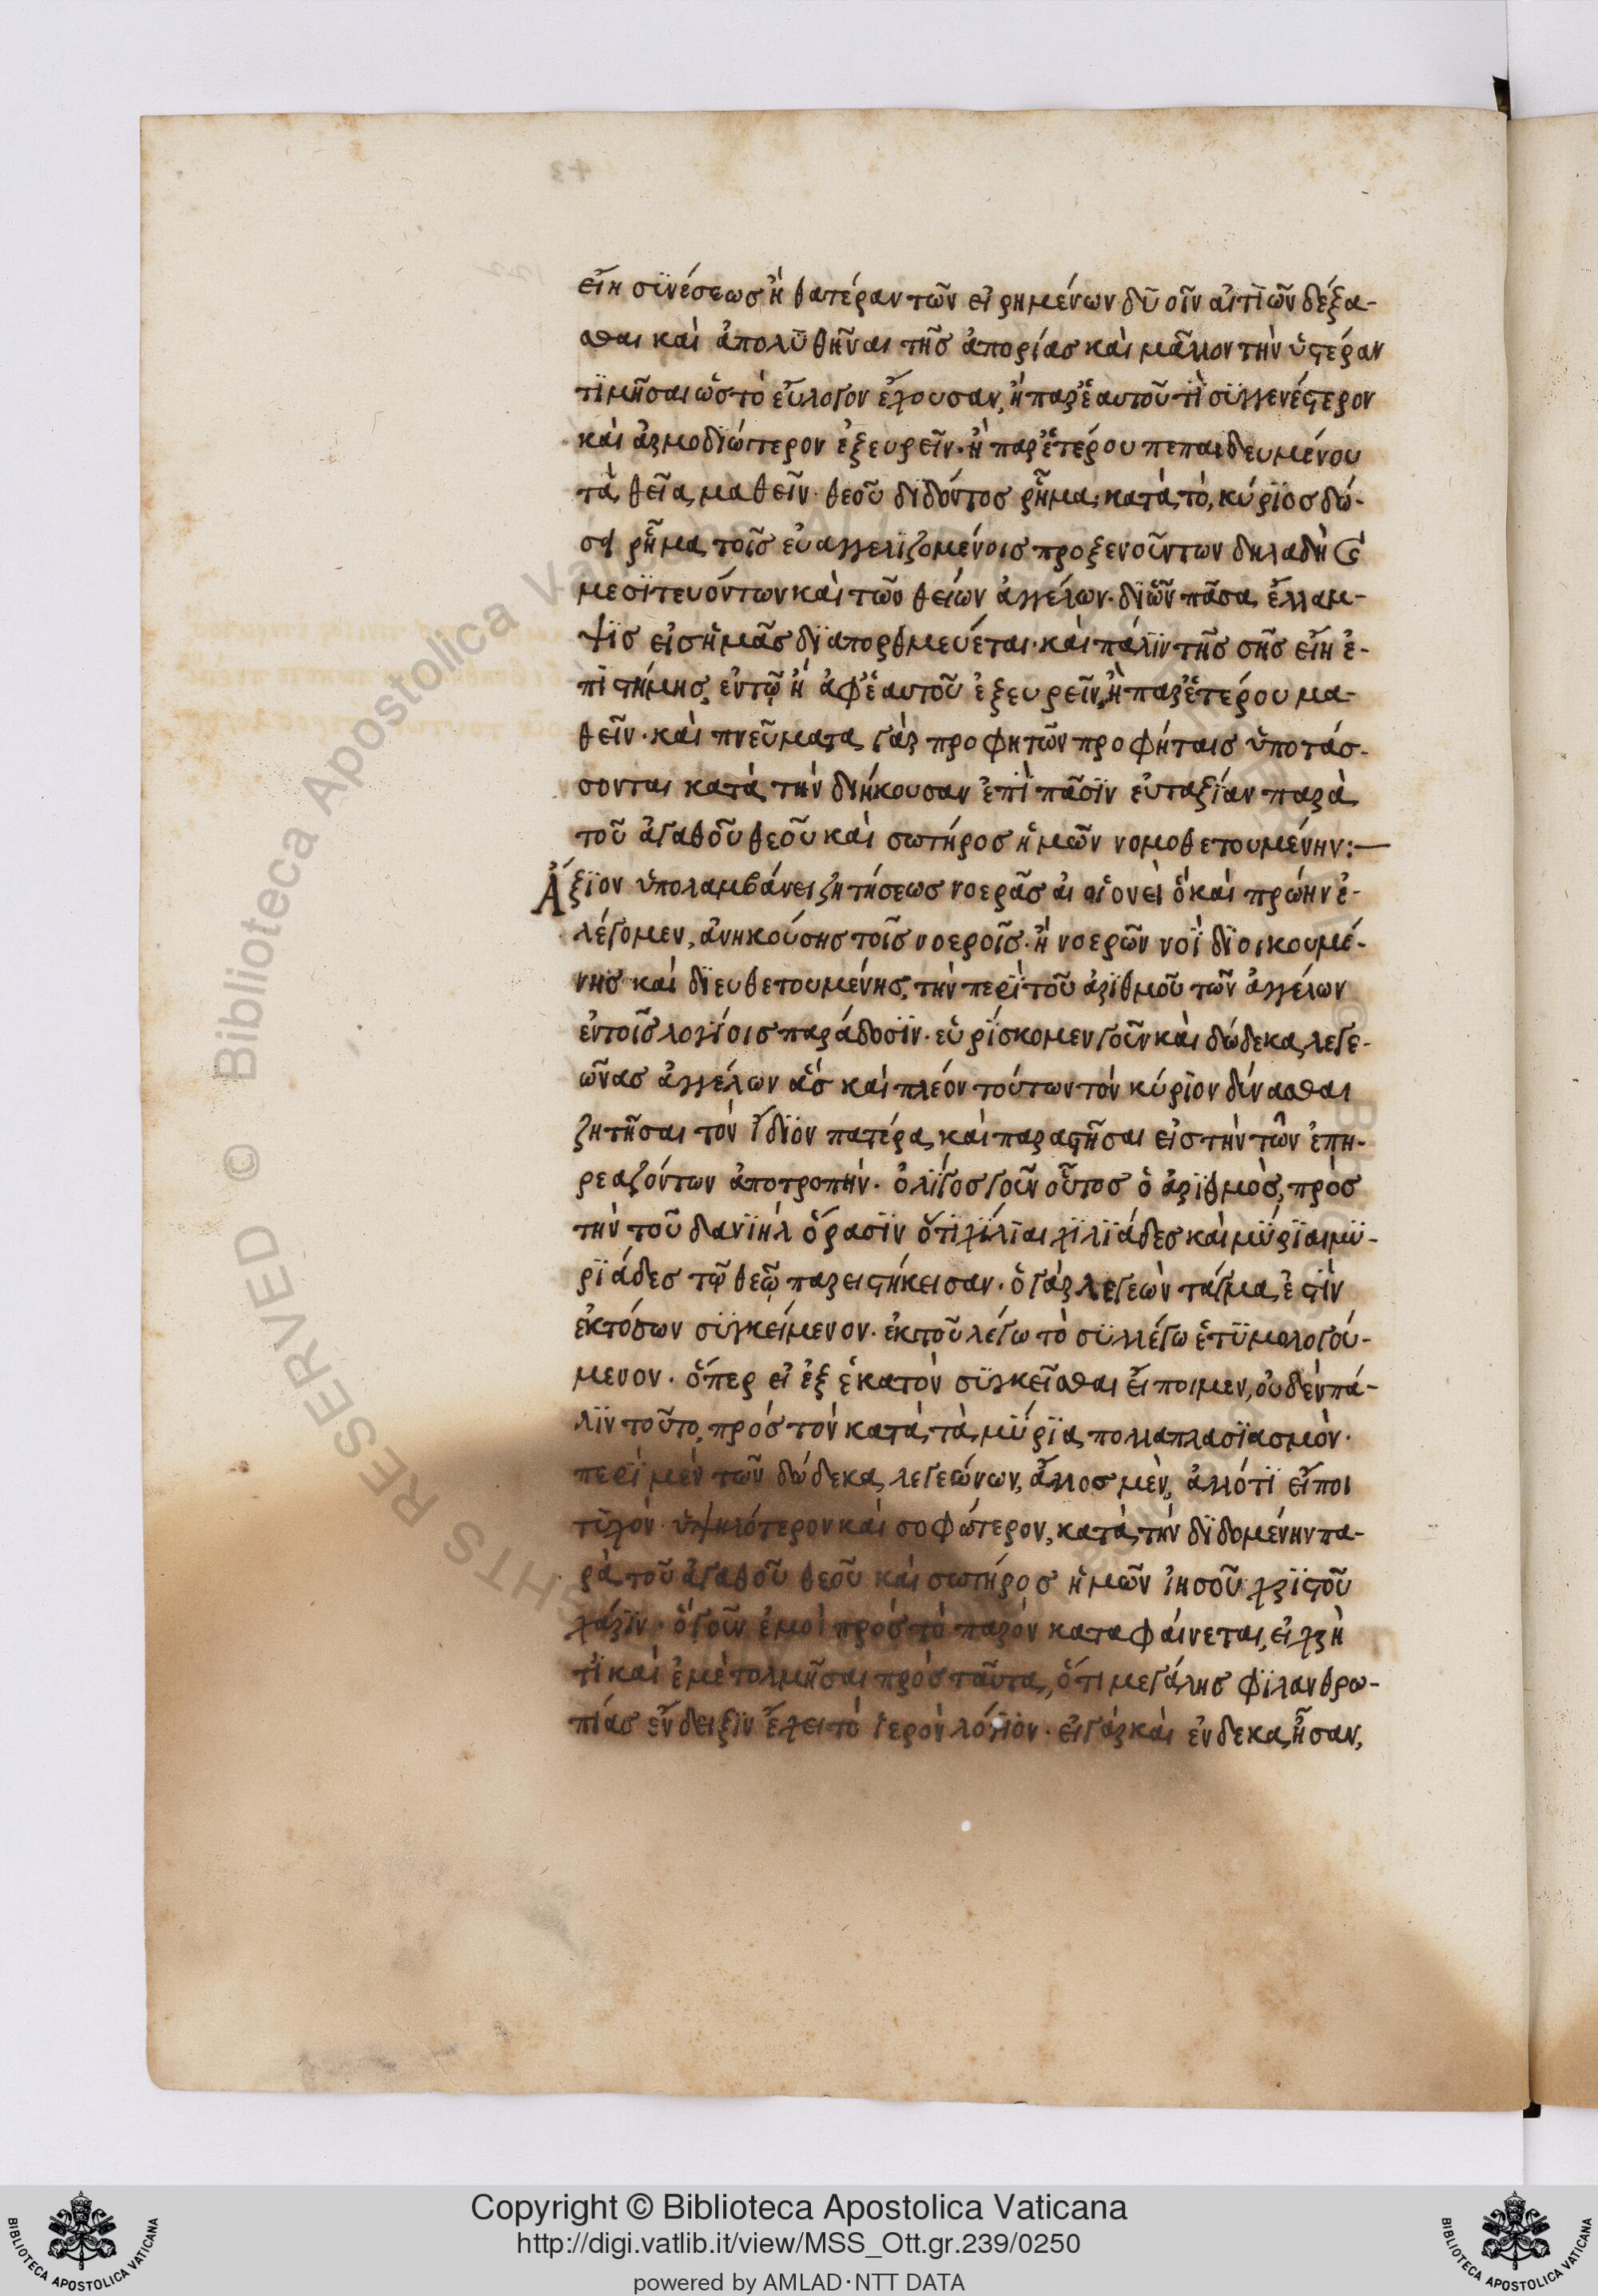 εἴη σϋνέσεωσ ἢ θατέραν τῶν εἰρημένων δϋοῖν αἰτϊῶν δέξα-
σθαι καὶ ἀπολϋθῆναι τῆσ ἀπορίασ καὶ μᾶλλον τὴν ὑστέραν
τϊμῆσαι ὡσ τὸ εὔλογον ἔχουσαν, ἢ παρ' ἑαυτοῦ τϊ σϋγγενέστερον
καὶ ἁρμοδϊώτερον ἐξευρεῖν· ἢ παρ' ἑτέρου πεπαιδευμένου
τὰ θεῖα μαθεῖν· θεοῦ δϊδόντοσ ῥῆμα· κατὰ τὸ, κύρϊοσ δώ-
σει ῥῆμα τοῖσ εὐαγγελϊζομένοισ προξενούντων δηλαδὴ καὶ
μεσϊτευόντων καὶ τῶν θείων ἀγγέλων· δϊ' ὧν πᾶσα ἔλλαμ-
ψϊσ εἰσ ἡμᾶσ δϊαπορθμεύεται· καὶ πάλϊν τῆσ σῆσ εἴη ἐ-
πϊστήμησ, ἐν τῷ ἢ ἀφ' ἑαυτοῦ ἐξευρεῖν, ἢ παρ' ἑτέρου μα-
θεῖν· καὶ πνεύματα γὰρ προφητῶν προφήταισ ὑποτάσ-
σονται κατὰ τὴν διήκουσαν ἐπὶ πᾶσϊν εὐταξίαν παρὰ
τοῦ ἀγαθοῦ θεοῦ καὶ σωτήροσ ἡμῶν νομοθετουμένην:—
Ἄξϊον ὑπολαμβάνει ζητήσεωσ νοερᾶσ αἰ οἱονεὶ ὃ καὶ πρώην ἐ-
λέγομεν, ἀνηκούσησ τοῖσ νοεροῖσ· ἢ νοερῶν νοῒ δϊοικουμέ-
νησ καὶ δϊευθετουμένησ, τὴν περὶ τοῦ ἀρϊθμοῦ τῶν ἀγγέλων
ἐν τοῖσ λογίοισ παράδοσϊν· εὑρϊσκομεν γοῦν καὶ δώδεκα λεγε-
ῶνασ ἀγγέλων ἃσ καὶ πλέον τούτων τὸν κύρϊον δύνασθαι
ζητῆσαι τὸν ἴδϊον πατέρα καὶ παραστῆσαι εἰσ τὴν τῶν ἐπη-
ρεαζόντων ἀποτροπήν· ὀλίγοσ γοῦν οὗτοσ ὁ ἀρϊθμὸσ, πρὸσ
τὴν τοῦ δανϊὴλ ὅρασϊν ὅτϊ χίλϊαι χϊλϊάδεσ καὶ μϋρϊαι μϋ-
ρϊάδεσ τῷ θεῷ παρειστήκεισαν· ὁ γὰρ λεγεὼν τάγμα ἐστὶν
ἐκ τόσων σϋγκείμενον· ἐκ τοῦ λέγω τὸ σϋλλέγω ἐτϋμολογού-
μενον· ὅπερ εἰ ἐξ ἑκατὸν σϋγκεῖσθαι εἴποιμεν, οὐδὲν πά-
λϊν τοῦτο, πρὸσ τὸν κατὰ τὰ μϋρϊα πολλαπλασϊασμόν·
περὶ μὲν τῶν δώδεκα λεγεώνων, ἄλλοσ μὲν, ἄλλό τϊ εἴποι
τϋχὸν ὑψηλότερον καὶ σοφώτερον, κατὰ τὴν δϊδομένην πα-
ρὰ τοῦ ἀγαθοῦ θεοῦ καὶ σωτήροσ ἡμῶν ἰησοῦ χρϊστοῦ
χάρϊν· ὃ γοῦν ἐμοὶ πρὸσ τὸ παρὸν καταφαίνεται, εἰ χρή
τϊ καὶ ἐμὲ τολμῆσαι πρὸσ ταῦτα, ὅτι μεγάλησ φϊλανθρω-
πίασ ἔνδειξϊν ἔχει τὸ ἱερὸν λόγϊον· εἰ γὰρ καὶ ἕνδεκα ἦσαν,
Copyright © Biblioteca Apostolica Vaticana
http://digi.vatlib.it/view/MSS_Ott.gr.239/0250
powered by AMLAD·NTT DATA
BIBLIOTECA APOSTOLICA VATICANA
BIBLIOTECA APOSTOLICA VATICANA